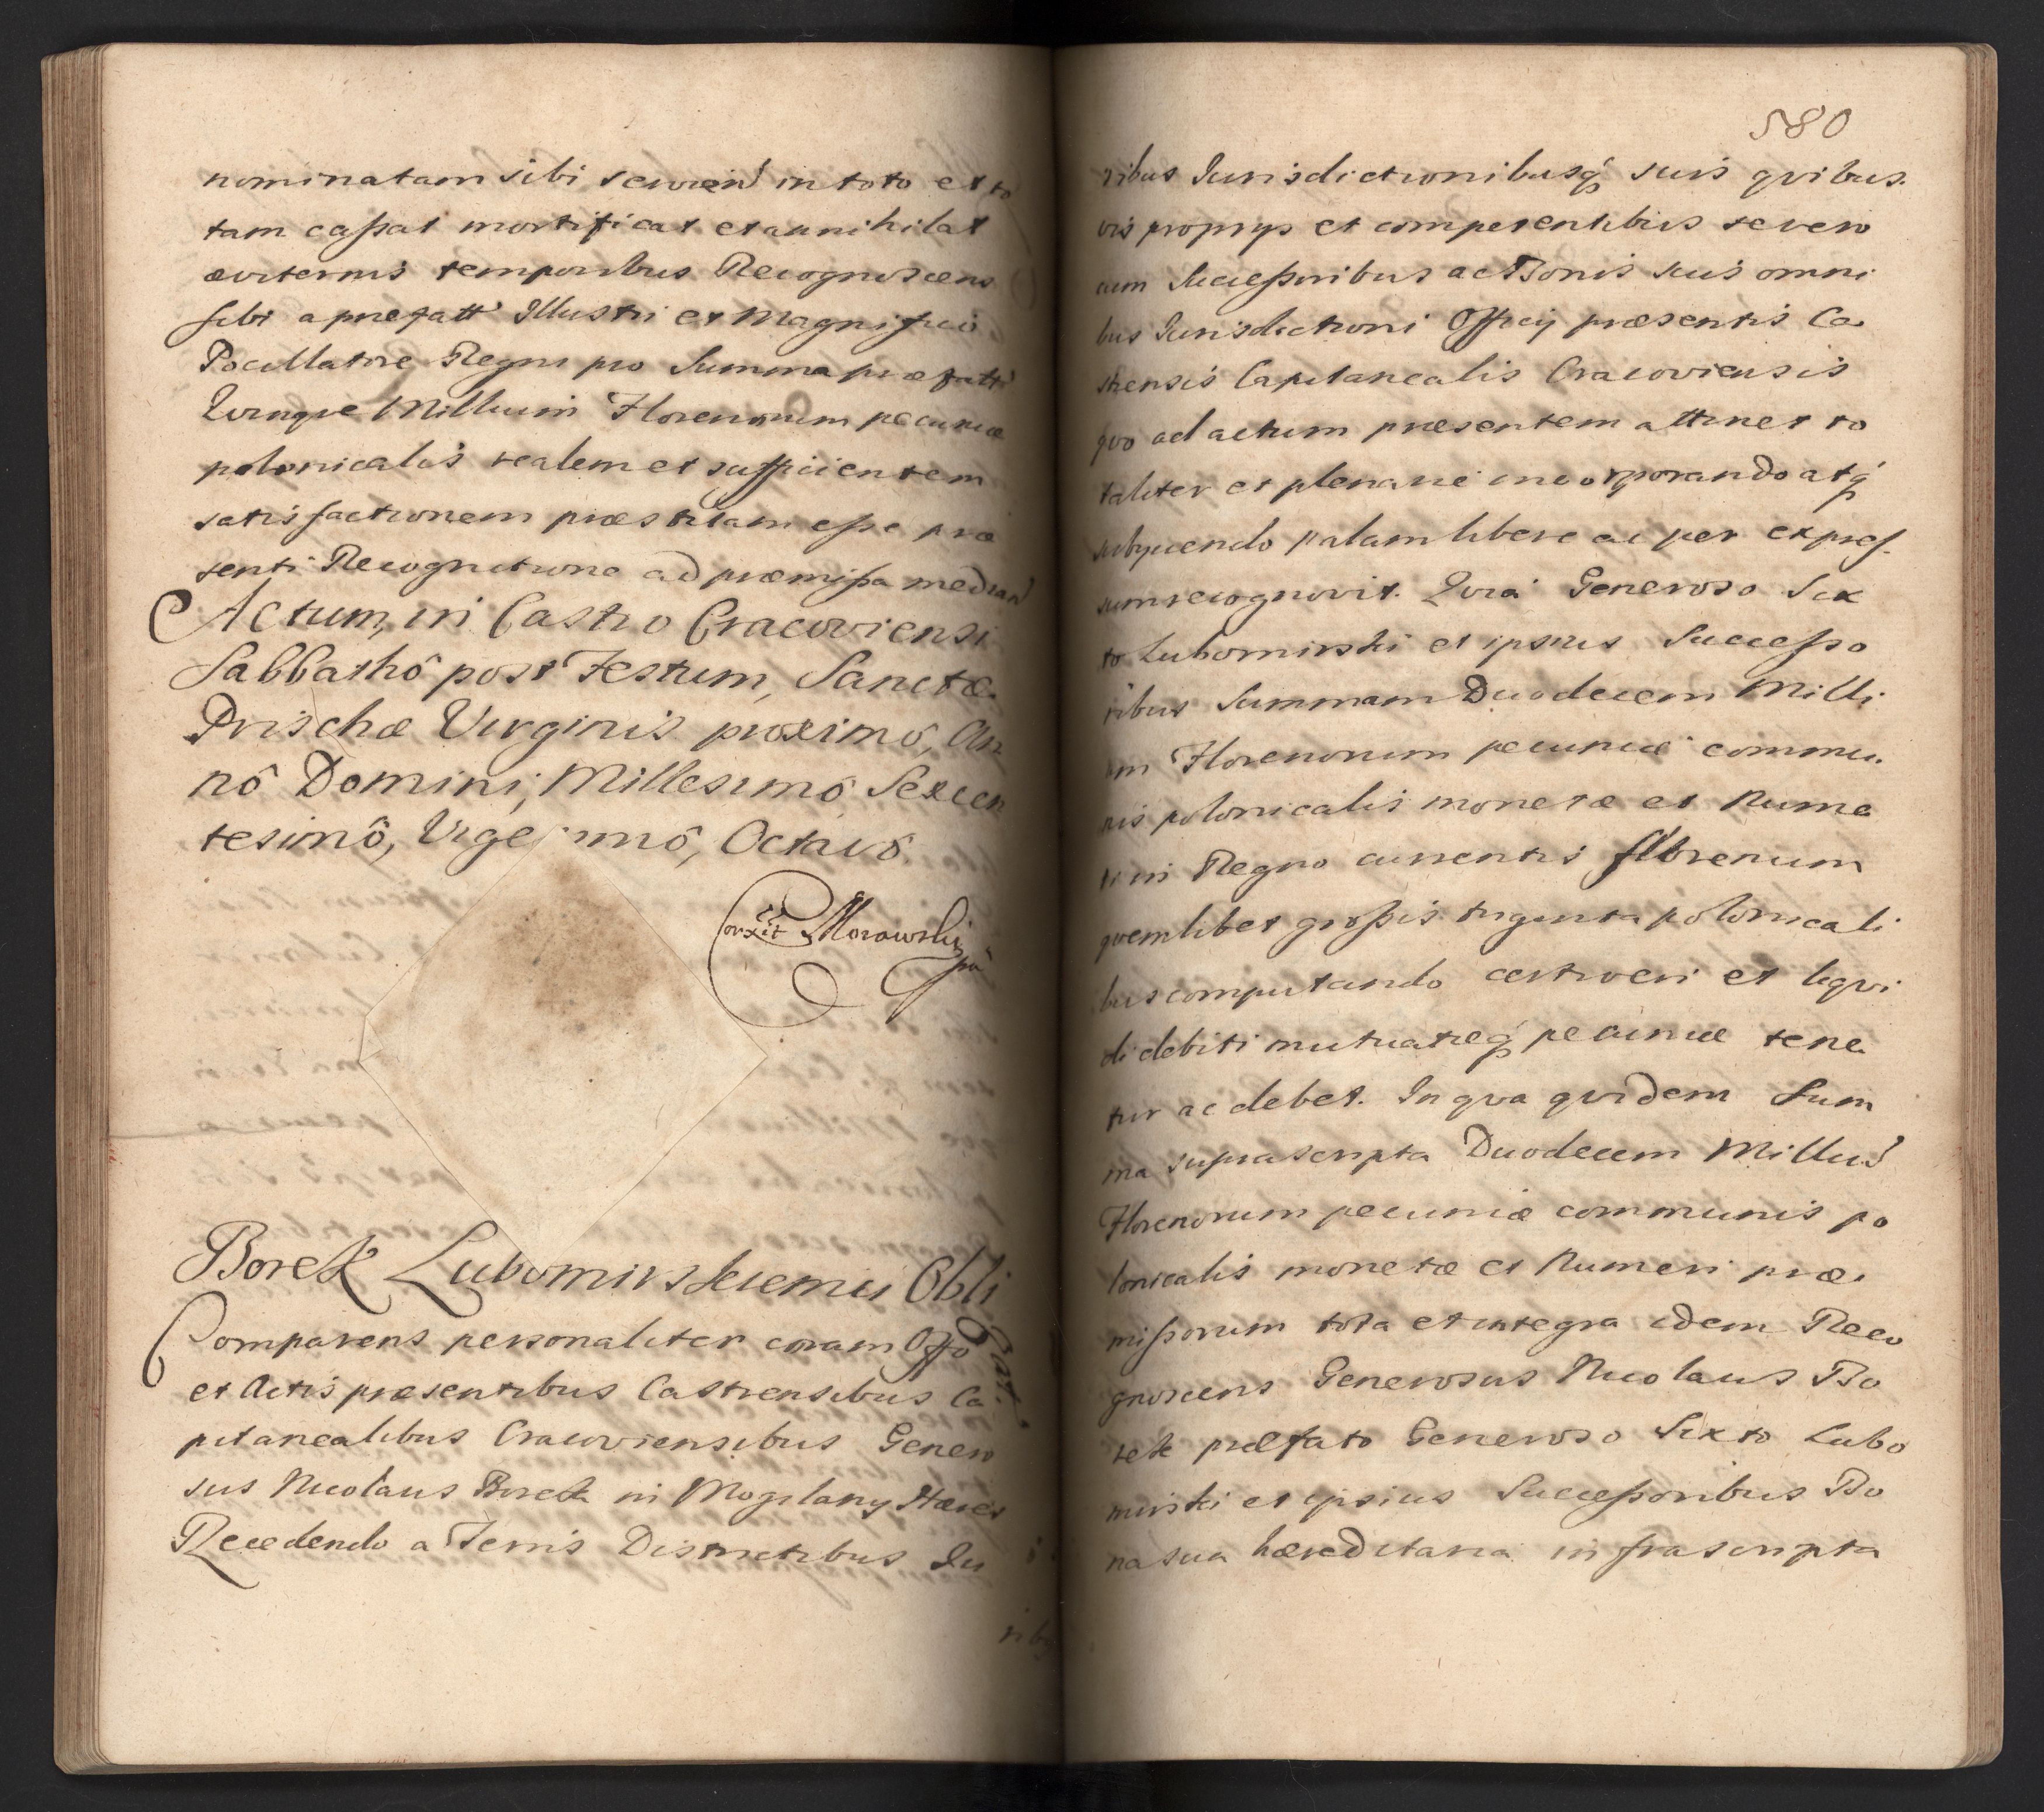 nominatam sibi serviend in toto et to
tam cassat mortificat et annihilat
æviternis temporibus Recognoscens
sibi a præfatt Illustri et Magnifico
Pocillatore Regni pro Summa præfatt
Quinque Millium Florenorum pecuniæ
polonicalis realem et sufficientem
satisfactionem præstitam esse præ
senti Recognitione ad præmissa median
Actum, in Castro Cracoviensi
Sabbathô post Festum, Sanctæ
Prischæ Virginis proximô, An
nô Domini, Millesimô Sexcen
tesimô, Vigesimô, Octavô.
Morawski
Borek Lubomirskiemu Obli
gat.
Comparens personaliter coram Offo
et Actis præsentibus Castrensibus Ca
pitanealibus Cracoviensibus Genero
sus Nicolaus Borek in Mogilany Hæres
Recedendo a Terris Districtibus Iu
ribus
580
ribus Iurisdictionibusq suis quibus.
vis proprys et competentibus se vero
cum Successoribus ac Bonis suis omni
bus Iurisdictioni Officy præsentis Ca
strensis Capitanealis Cracoviensis
quo ad actum præsentem attinet to
taliter et plenarie incorporando atq
subyciendo palam libere ac per expres.
sum recognovit. Quia Generoso Six
to Lubomirski et ipsius Successo
ribus Summam Duodecem Milli
um Florenorum pecuniæ commu.
nis polonicalis monetæ et Nume
ri in Regno currentis florenum
quemlibet grossis triginta polonicali
bus computando certi veri et liqui
di debiti mutuatæq pecuniæ tene
tur ac debet. In qua quidem Sum
ma suprascripta Duodecem Milliu
Florenorum pecuniæ communis po
lonicalis monetæ et Numeri præ.
missorum tota et integra idem Reco
gnoscens Generosus Nicolaus Bo
rek præfato Generoso Sixto Lubo
mirski et ipsius Successoribus Bo
na sua hæreditaria infrascripta